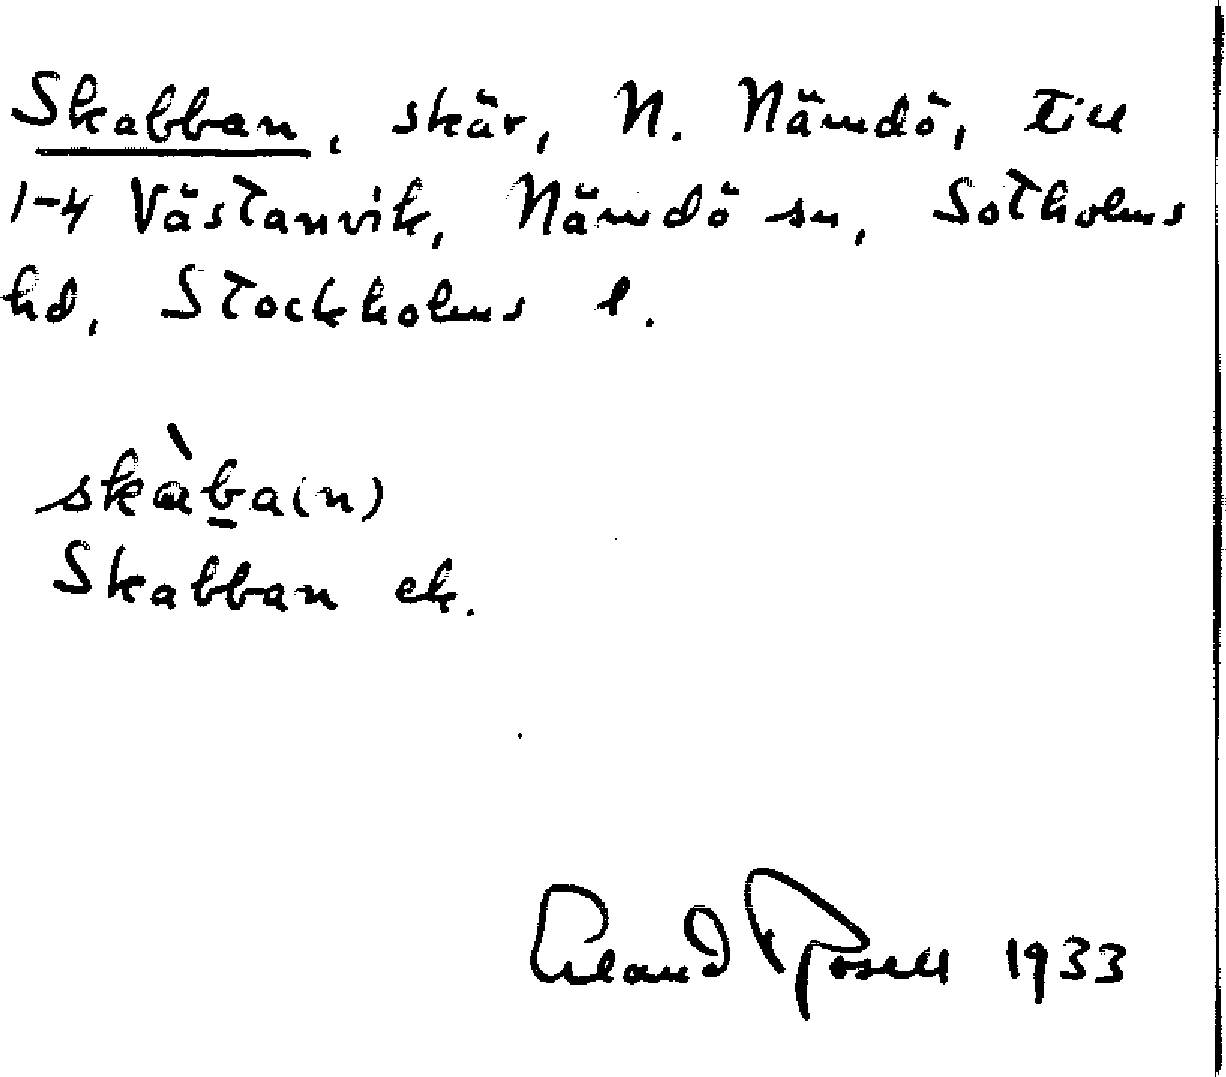 Skabban, skär, N. Nämdö, till
1-4 Västanvik, Nämdö sn, Sotholms
hd, Stockholms l.
skàba(n)
Skabban ek.
Erland Rosell 1933